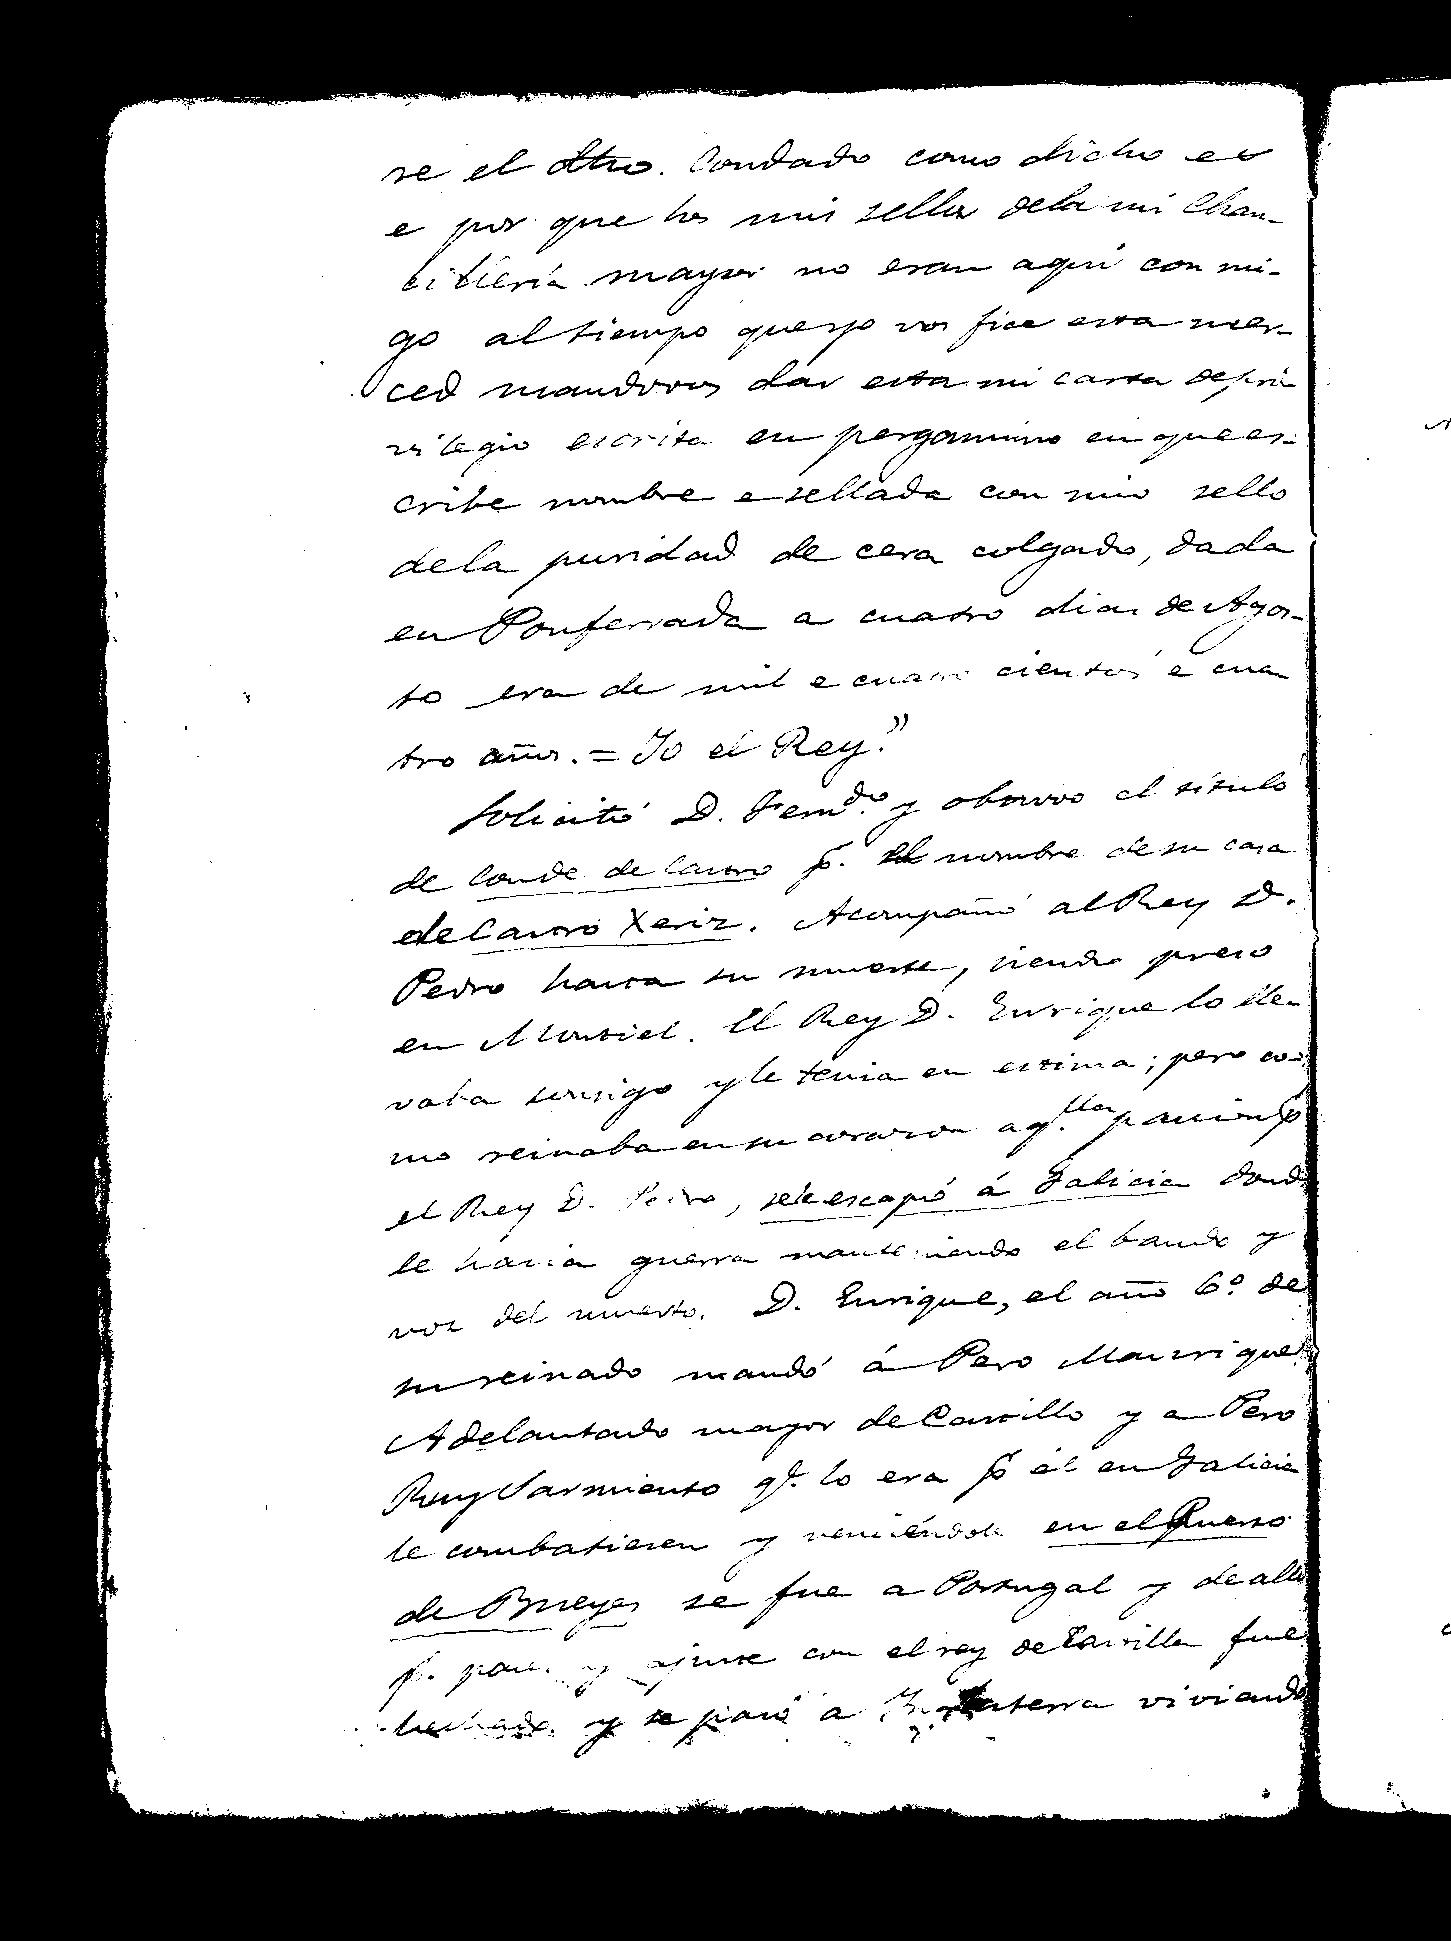 se el dho. Condado como dicho es
e por que los mis sellos dela mi Chan-
cilleria mayor no eran aqui con mi-
go al tiempo que yo vos fice esta mer-
ced mandovos dar esta mi carta de pri-
vilegio escrita en pergamino en que es-
cribe nombre e sellada con mio sello
dela puridad de cera colgado, dada
en Ponferrada a cuatro dias de Agos-
to era de mil e cuatro cientos e cua
tro años. = Yo el Rey."
Solicitó D. Ferndo. y obtuvo el título
de Conde de Castro p. el nombre de su casa
de Castro Xeriz. Acompañó al Rey D.
Pedro hasta su muerte, siendo preso
en Montiel. El Rey D. Enrique lo lle-
vaba consigo y le tenia en estima; pero co-
mo reinaba en su corazon aq.lla pasion p
el Rey D. Pedro, sele escapó á Galicia dond
le hacia guerra manteniendo el bando y
voz del muerto. D. Enrique, el año 6º. de
su reinado mandó á Pero Manrique
Adelantado mayor de Castilla y a Pero
Ruy Sarmiento q. lo era p él en Galicia
le combatiesen y venciéndole en el Puerto
de Bueyes se fue a Portugal y de alli
p. paz y ajuste con el rey de Castilla fue
hechado y se pasó a Inglaterra viviendo